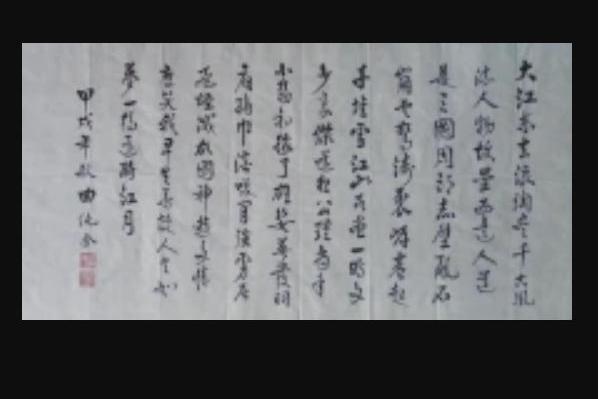 大江东去浪淘尽千古風
流人物故壘西邊人道
是三國周郎赤壁亂石
崩雲驚濤裂岸卷起
千堆雪江山如畫一時多
少豪傑遥想公瑾當年
小喬初嫁了雄姿英發羽
扇綸巾談笑間强虜灰
飛煙滅故國神遊多情
應笑我早生華發人生如
夢一樽還酹江月
甲戌年秋